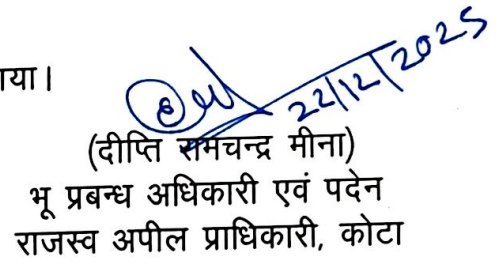 गया।
22/12/2025
(दीप्ति रामचन्द्र मीना)
भू प्रबन्ध अधिकारी एवं पदेन
राजस्व अपील प्राधिकारी, कोटा